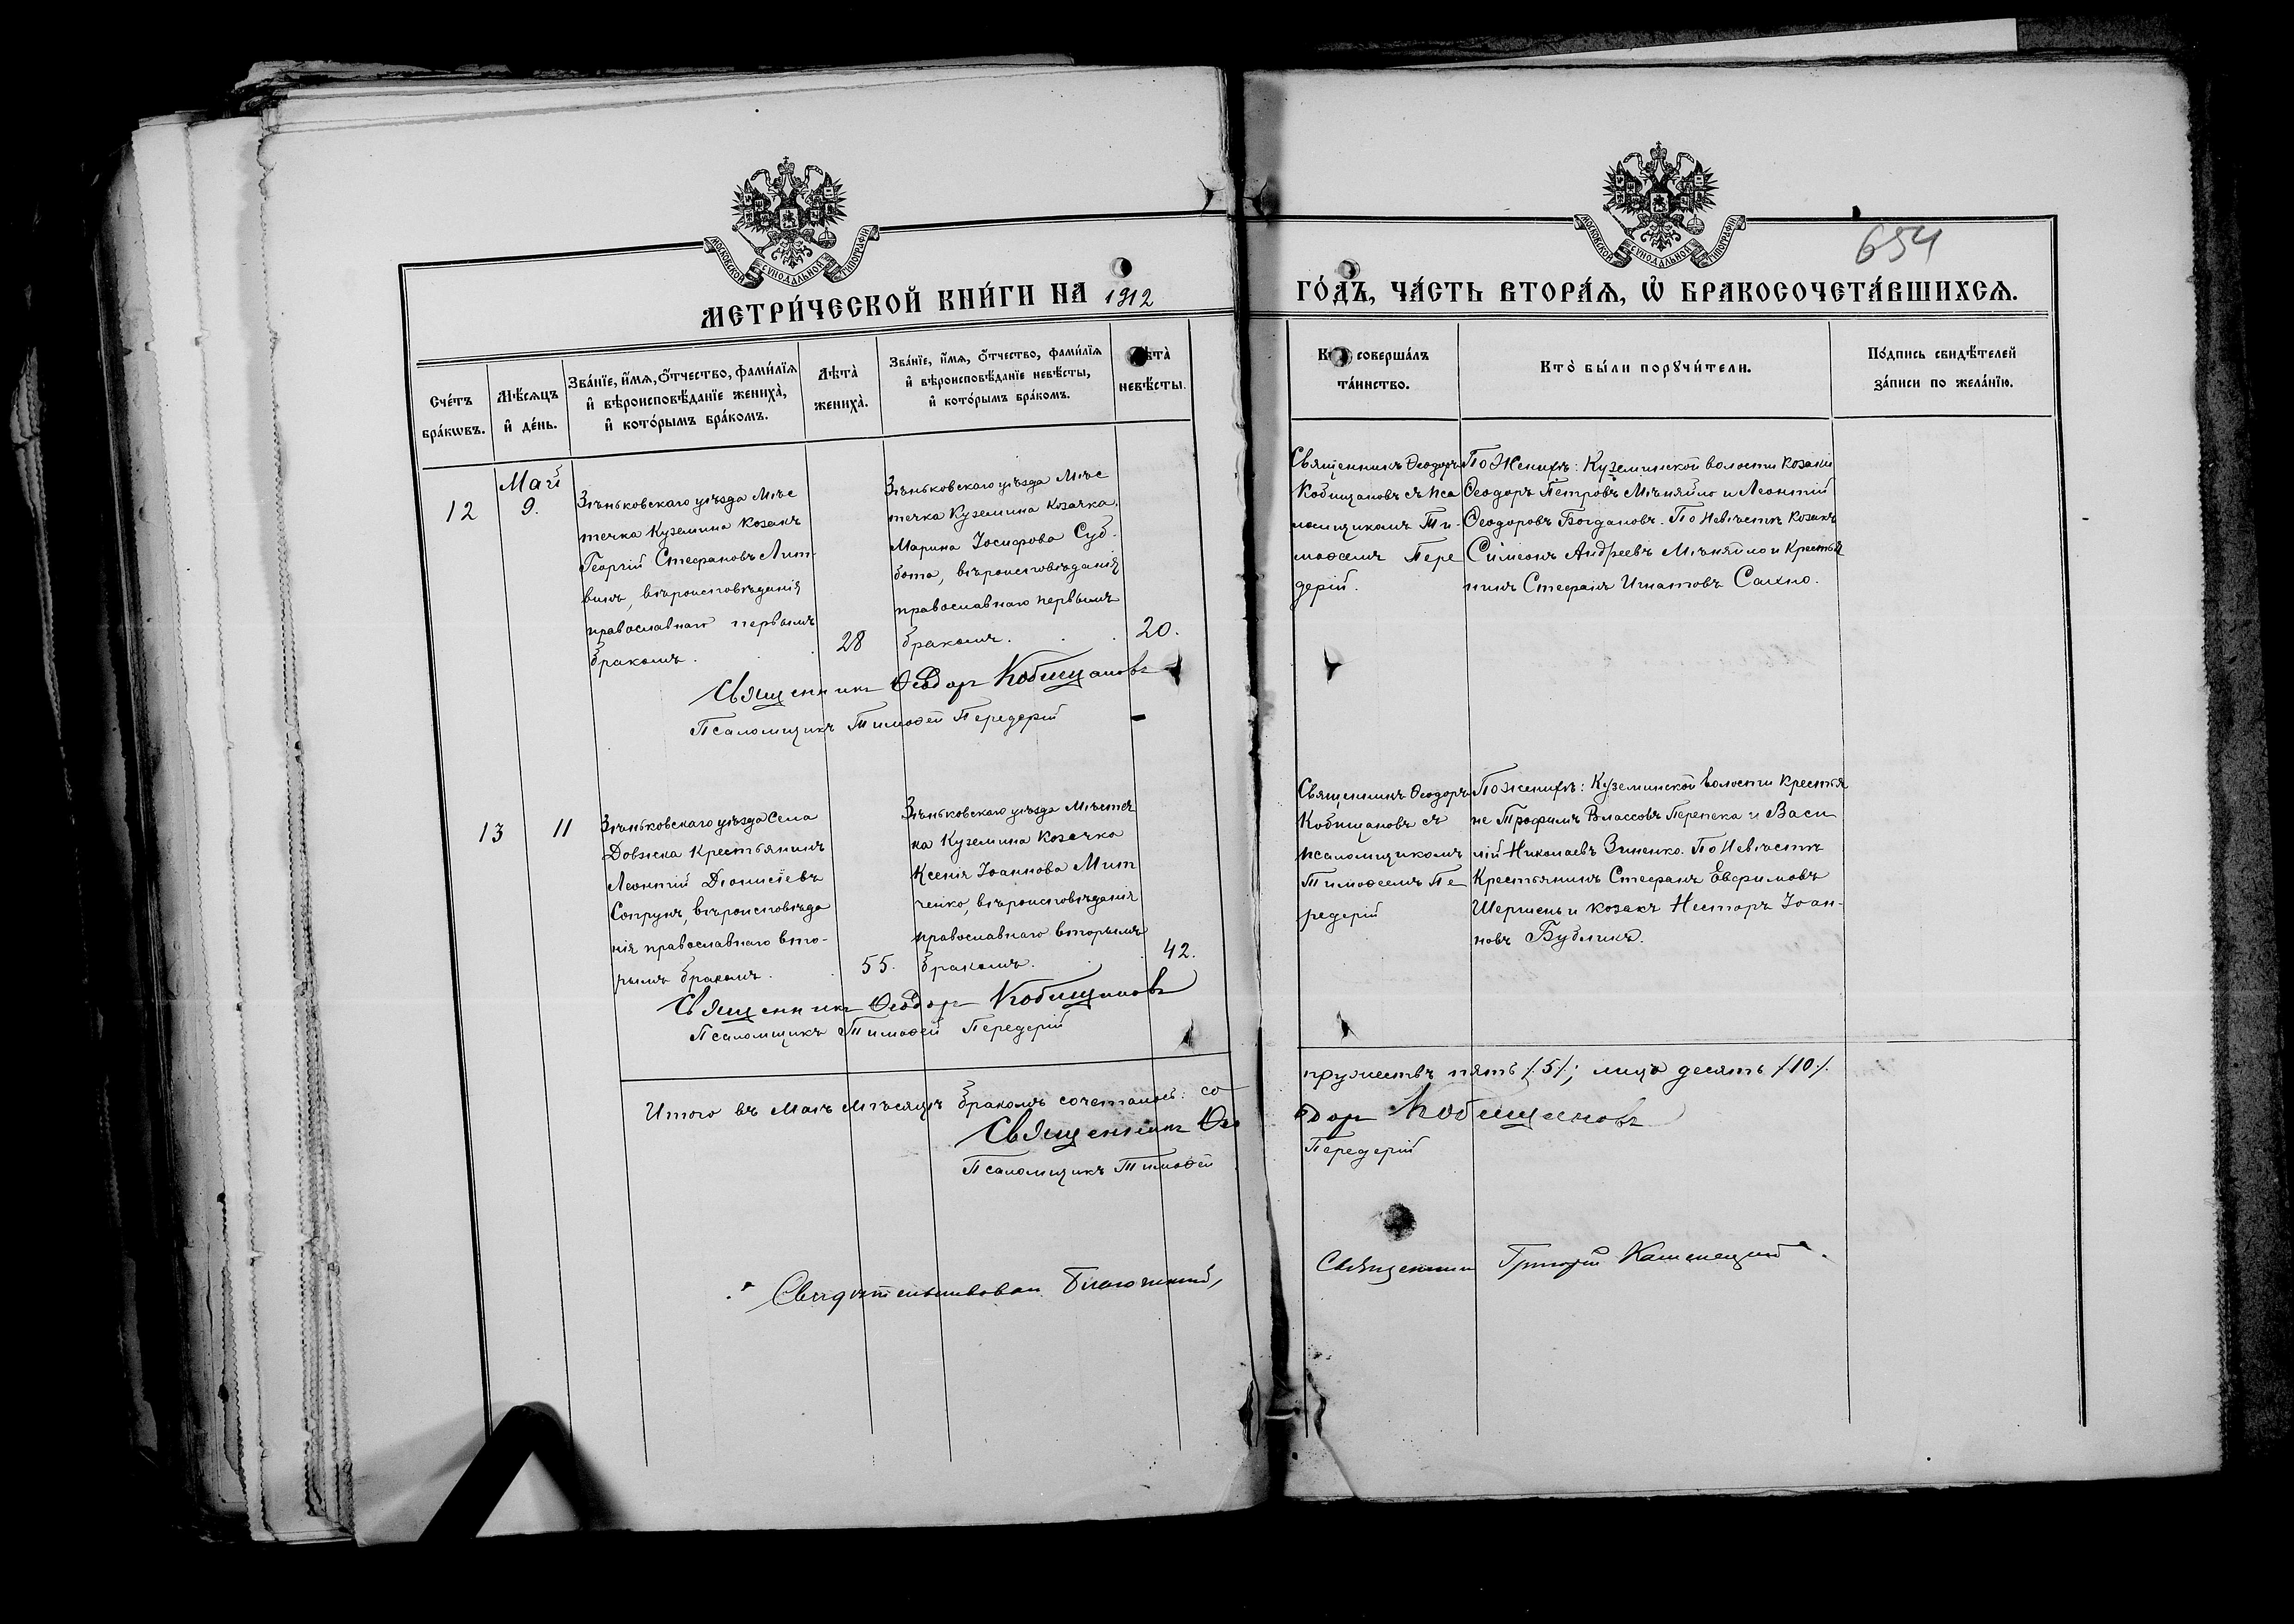 МОСКОВСКОЙ СУНОДАЛЬНОЙ ТИПОГРАФІИ
МОСКОВСКОЙ СУНОДАЛЬНОЙ ТИПОГРАФІИ
654
МЕТРИ́ЧЕСКОЙ КНИ́ГИ НА 1912
ГО́ДЪ, ЧА́СТЬ ВТОРА́Ѧ, Ѿ БРАКОСОЧЕТА́ВШИХСѦ.
Сче́тъ
бра́кѡвъ.
Мѣ́сяцъ
и҆ де́нь.
Зва́нїе, и҆́мѧ, ѻ҆́тчество, фами́лїѧ
и҆ вѣроисповѣ́данїе жениха̀,
и҆ кото́рымъ бра́комъ.
Лѣта̀
жениха̀.
Зва́нїе, и҆́мѧ, ѻ҆́тчество, фами́лїѧ
и҆ вѣроисповѣ́данїе невѣ́сты,
и҆ кото́рымъ бра́комъ.
Лѣта̀
невѣ́сты.
Кто̀ соверша́лъ
та́инство.
Кто̀ бы́ли порꙋчи́тели.
По́дпись свидѣ́телей
за́писи по жела́нїю.
12
Май
9.
Зѣньковскаго уѣзда Мѣс
течка Куземина Козакъ
Георгій Стефановъ Лит-
винъ, вѣроисповѣданія
православнаго первымъ
бракомъ.
28
Зѣньковскаго уѣзда Мѣс
течка Куземина Козачка
Марина Іосифова Суб-
бота, вѣроисповѣданія
православнаго первымъ
бракомъ.
20.
Священникъ Ѳеодоръ
Кобищановъ съ пса
ломщикомъ Ти-
моѳеемъ Пере
дерій.
По Женихѣ: Куземинской волости козаки
Ѳеодоръ Петровъ Мѣняйло и Леонтій
Ѳеодоровъ Богдановъ. По Невѣстѣ Козакъ
Симеонъ Андреевъ Мѣняйло и Крестья
нинъ Стефанъ Игнатовъ Сахно.
Священникъ Ѳеодоръ Кобищановъ
Псаломщикъ Тимоѳей Передерій
13
11
Зѣньковскаго уѣзда Села
Должка Крестьянинъ
Леонтій Діонисіевъ
Сопрунъ, вѣроисповѣда
нія православнаго вто-
рымъ бракомъ.
55.
Зѣньковскаго уѣзда Мѣстеч
ка Куземина Козачка
Ксенія Іоаннова Мит
ченко, вѣроисповѣданія
православнаго вторымъ
бракомъ.
42.
Священникъ Ѳеодоръ
Кобищановъ съ
псаломщикомъ
Тимоѳеемъ Пе
редерій
По женихѣ: Куземинской волости крестья
не Трофимъ Власовъ Перепека и Васи
лій Николаевъ Зиненко. По Невѣстѣ
Крестьянинъ Стефанъ Евфимовъ
Шершень и козакъ Несторъ Іоан-
новъ Бубликъ.
Священникъ Ѳеодоръ Кобищановъ
Псаломщикъ Тимоѳей Передерій
Итого въ Маѣ мѣсяцѣ бракомъ сочеталось: супружествъ пять /5/; лицъ десять /10/.
Священникъ Ѳеодоръ Кобищановъ
Псаломщикъ Тимоѳей Передерій
Свидѣтельствовалъ Благочинный, Священникъ Григорій Каменецкій.